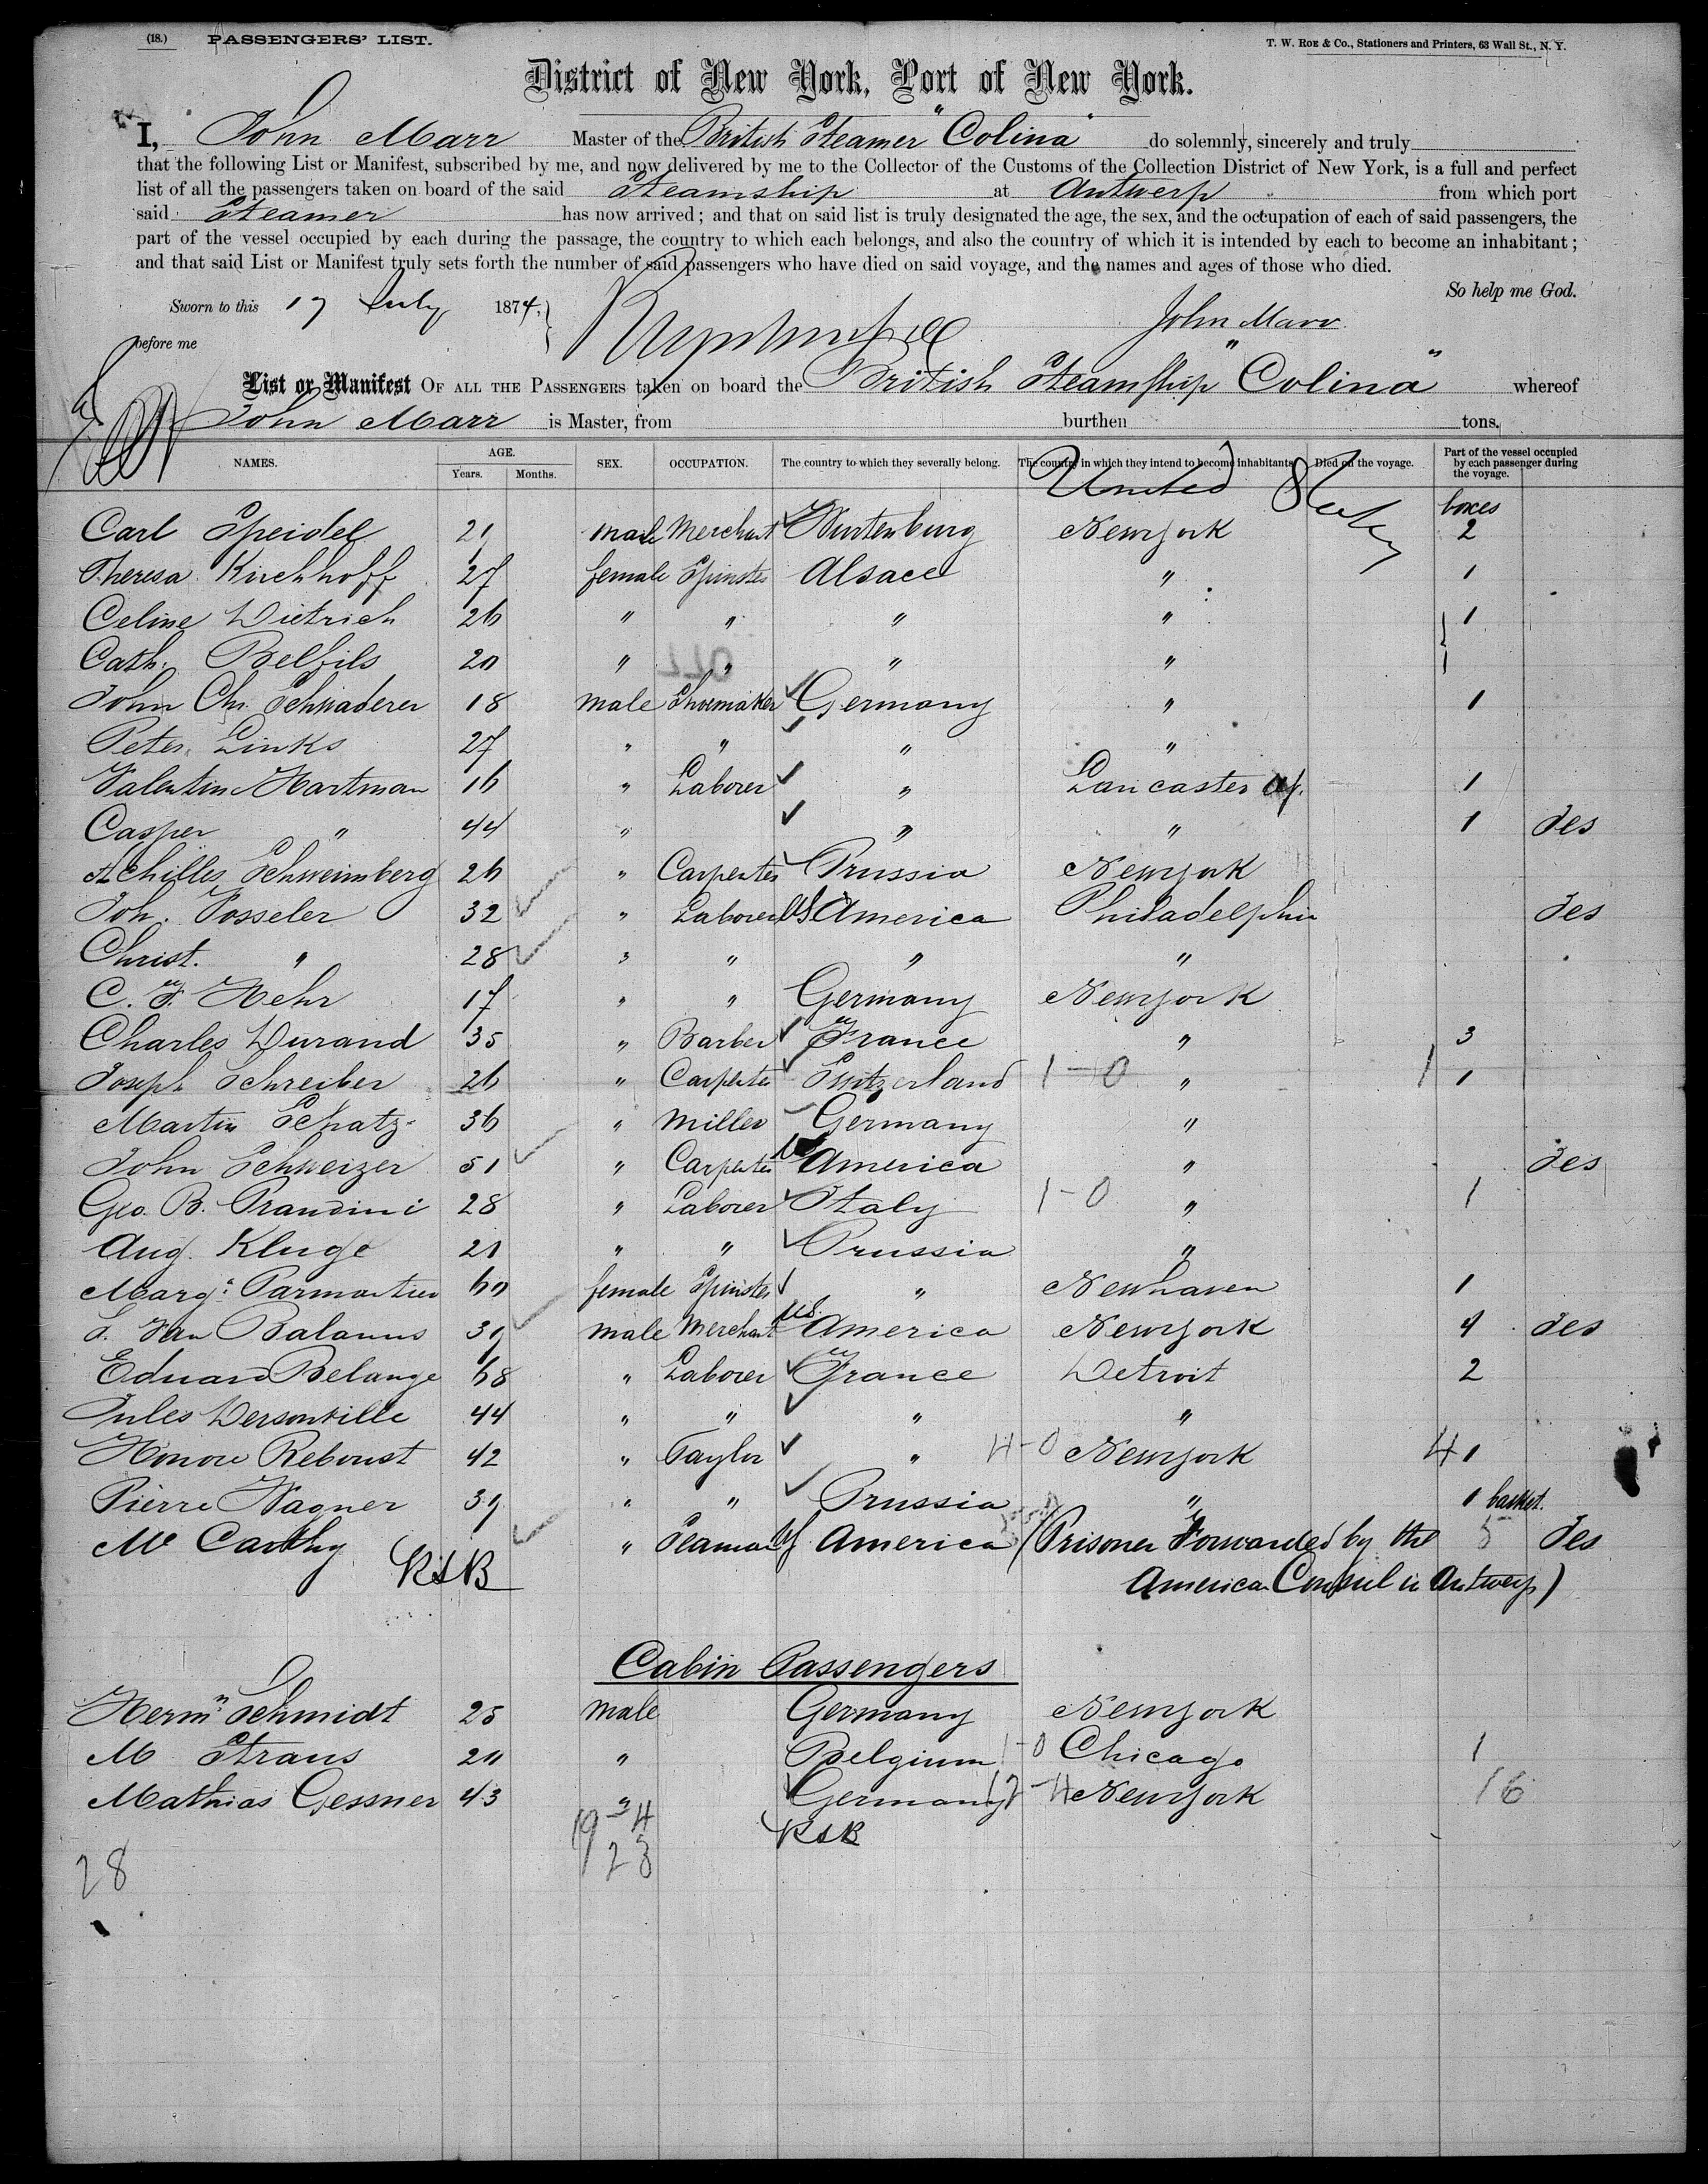 (18.) PASSENGERS' LIST. T. W. ROE & Co., Stationers and Printers, 63 Wall St., N. Y.
District of New York, Port of New York.
I, John Marr Master of the British Steamer "Colina" do solemnly, sincerely and truly
that the following List or Manifest, subscribed by me, and now delivered by me to the Collector of the Customs of the Collection District of New York, is a full and perfect
list of all the passengers taken on board of the said Steamship at Antwerp from which port
said Steamer has now arrived; and that on said list is truly designated the age, the sex, and the occupation of each of said passengers, the
part of the vessel occupied by each during the passage, the country to which each belongs, and also the country of which it is intended by each to become an inhabitant;
and that said List or Manifest truly sets forth the number of said passengers who have died on said voyage, and the names and ages of those who died.
So help me God.
Sworn to this 17 July 1874,
John Marr
before me
List or Manifest OF ALL THE PASSENGERS taken on board the British Steamship "Colina" whereof
John Marr is Master, from burthen tons.
NAMES. AGE. Years. Months. SEX. OCCUPATION. The country to which they severally belong. The country in which they intend to become inhabitants. Died on the voyage. Part of the vessel occupied by each passenger during the voyage.
United States boxes
Carl Speidel 29 male Merchant Wurtenburg Newyork 2
Theresa Kirchhoff 27 female Spinster Alsace " 1
Celine Dietrich 26 " " " " 1
Cath. Belfils 20 " " " "
John Ch. Schwaderer 18 male Shoemaker Germany " 1
Peter Links 27 " " " "
Valentin Hartman 16 " Laborer " Lancaster 1
Casper " 44 " " " 1 des
Achilles Schweimberg 26 " Carpenter Prussia Newyork
Joh. Posseler 32 " Laborer US America Philadelphia des
Christ. " 28 " " " "
C. F. Hehr 17 " " Germany Newyork
Charles Durand 35 " Barber France " 3
Joseph Schreiber 26 " Carpenter Switzerland 1-0 " 1 1
Martin Schatz 36 " Miller Germany "
John Schweizer 51 " Carpenter America " des
Geo. B. Prandini 28 " Laborer Italy 1-0 " 1
Aug. Kluge 21 " " Prussia "
Marg. Parmentier 60 female Spinster " Newhaven 1
S. Van Balanus 39 male Merchant US. America Newyork 4 des
Eduard Belange 68 " Laborer France Detroit 2
Jules Dersonville 44 " " " "
Honore Reboust 42 " Taylor " 4-0 Newyork 4 1
Pièrre Wagner 39 " " Prussia " 1 basket.
Mc Carthy " Seaman US America (Prisoner Forwarded by the 5 des
American Consul in Antwerp)
RSB
Cabin Passengers
Herm. Schmidt 25 male Germany Newyork
M Straus 20 " Belgium 1-0 Chicago 1
Mathias Gessner 43 " Germany 12-4 Newyork 16
19-4 RSB
28 28